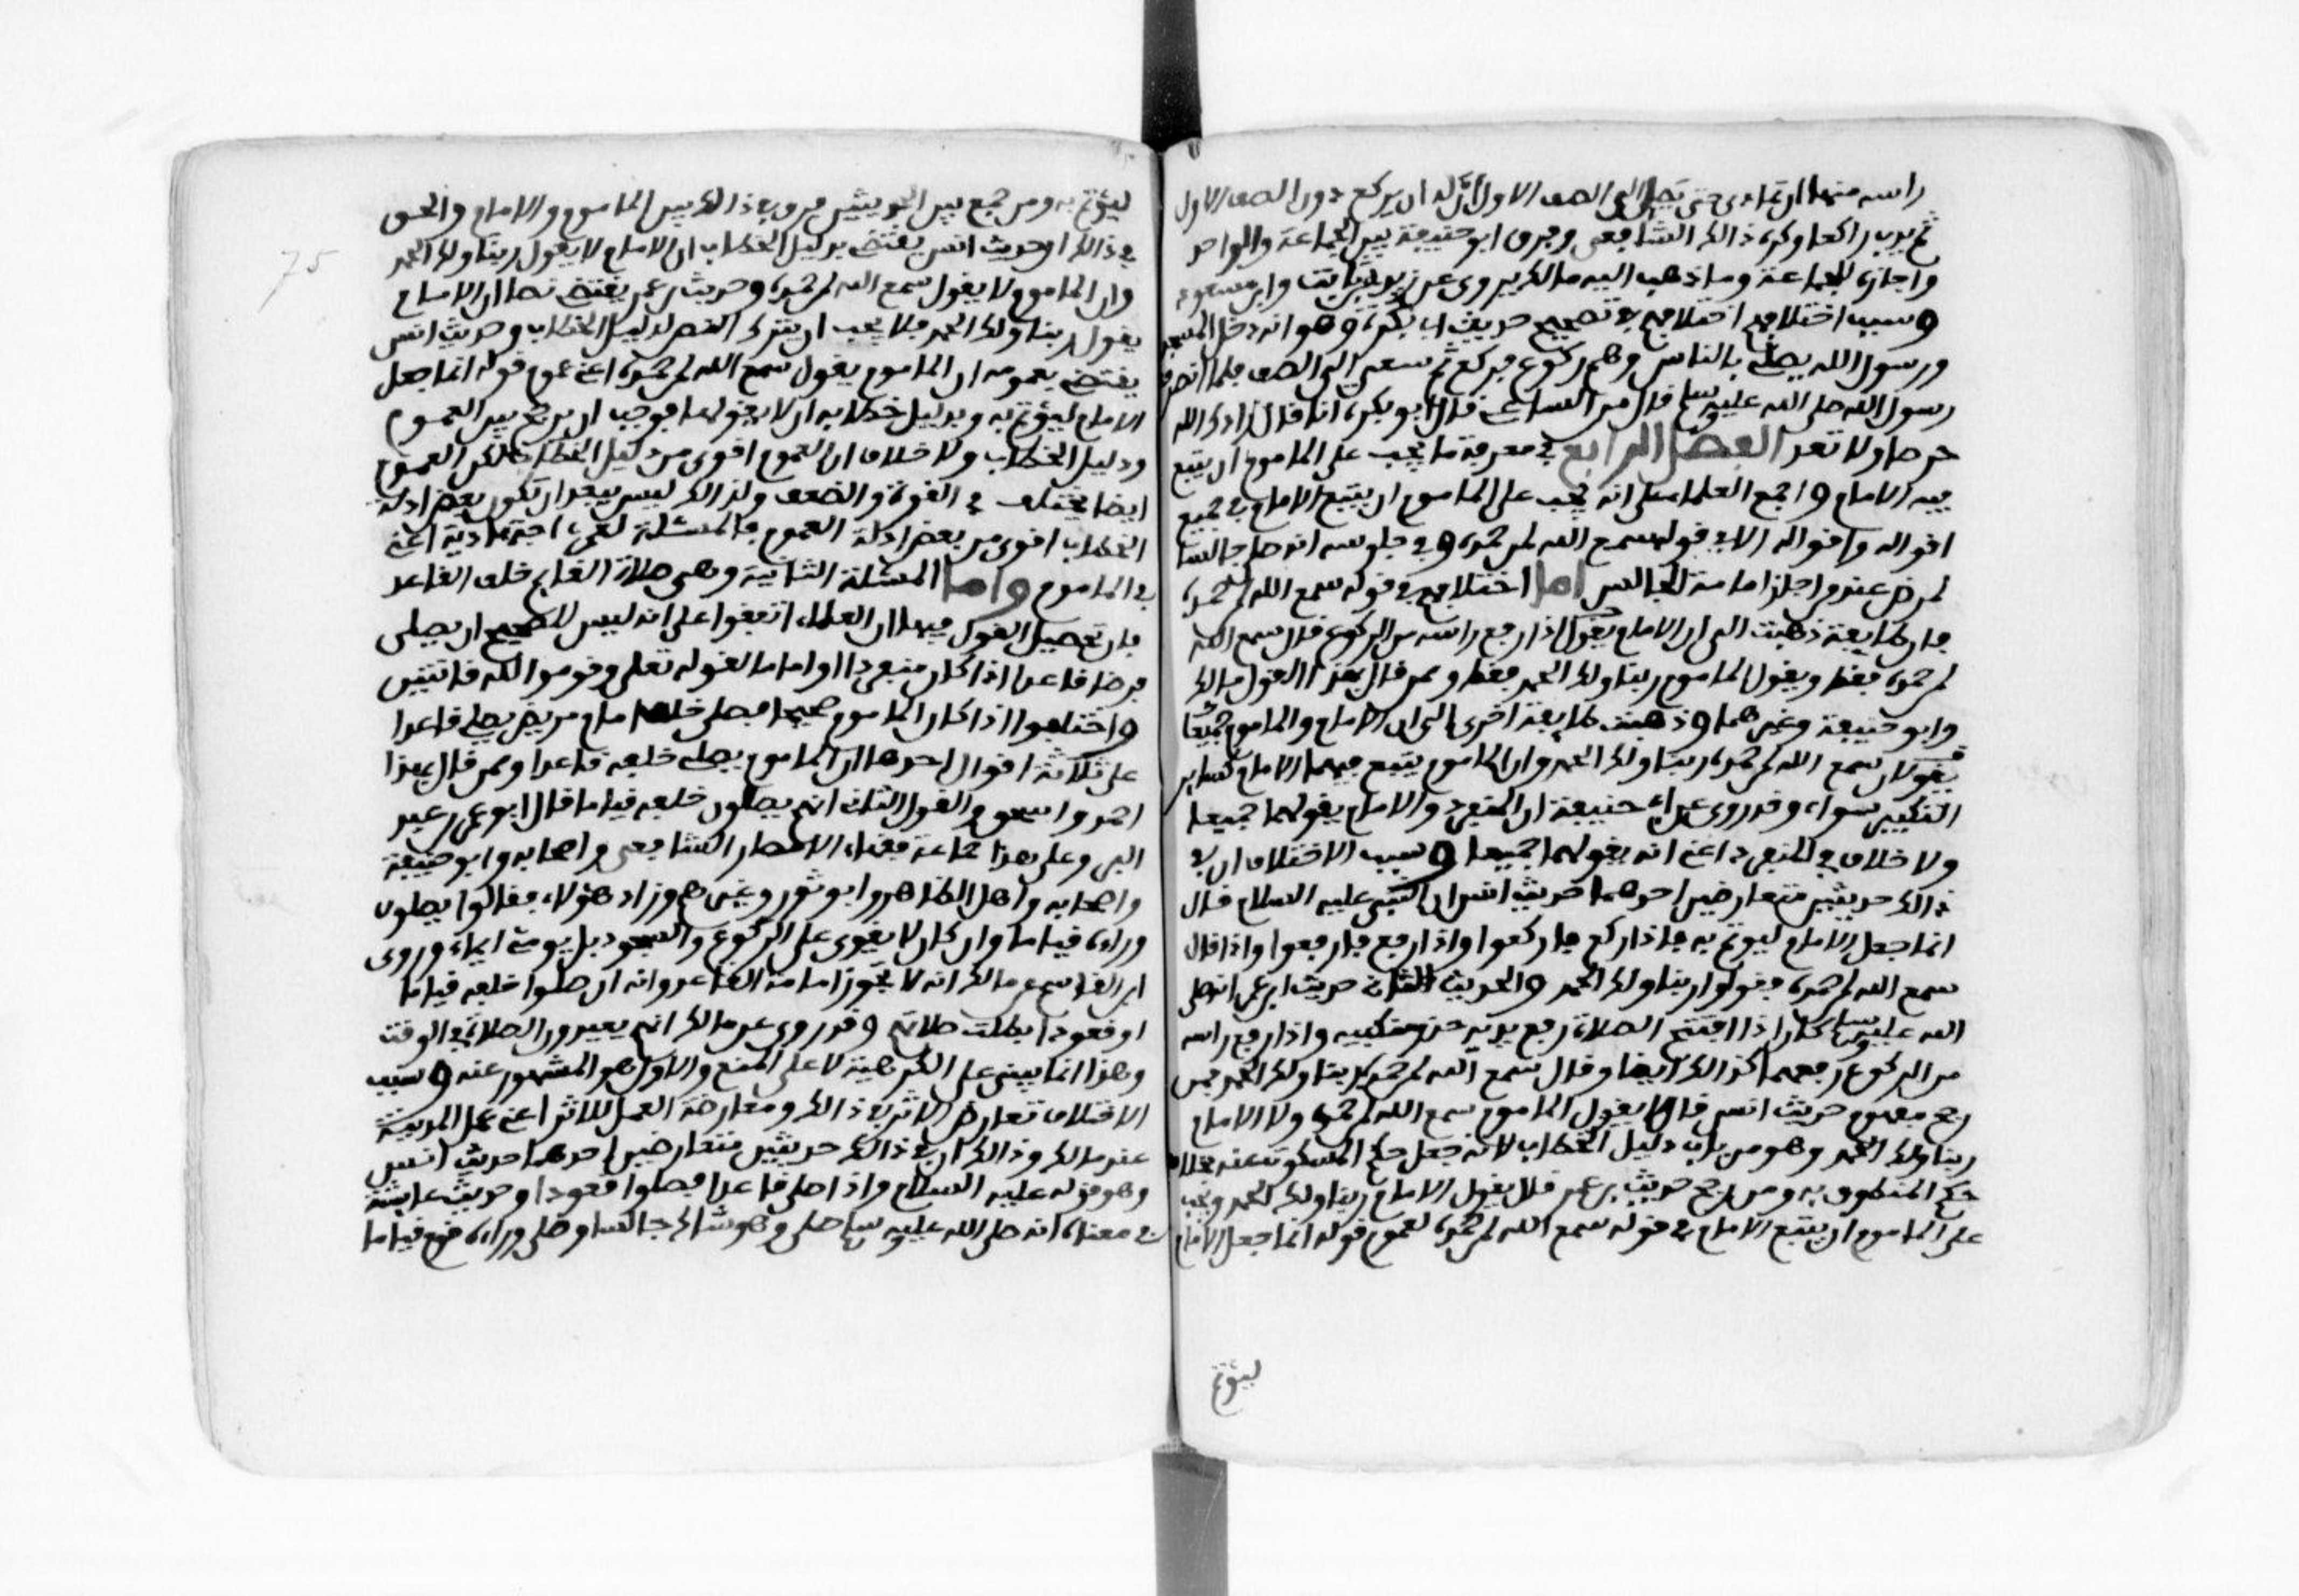 راسه منها ان تمادى حتى يصل الى الصف الاول ان له ان يركع دون الصف الاول
ثم يدب راكعا وكره ذالك الشافعي وفرق ابو حنيفة بين الجماعة والواحد
واجازه للجماعة وما ذهب اليه مالك يروى عن زيد بن ثابت وابن مسعود
وسبب اختلافهم اختلافهم في تصحيح حديث ابي بكرة وهو انه دخل المسجد
ورسول الله يصلي بالناس وهم ركوع فركع ثم سعى الى الصف فلما انصرف
رسول الله صلى الله عليه وسلم قال من الساعي قال ابو بكرة انا قال زادك الله
حرصا ولا تعد الفصل الرابع في معرفة ما يجب على الماموم ان يتبع
فيه الامام واجمع العلماء على انه يجب على الماموم ان يتبع الامام في جميع
اقواله وافعاله الا في قوله سمع الله لمن حمده وفي جلوسه اذا صلى جالسا
لمرض عند من اجاز امامة الجالس اما اختلافهم في قوله سمع الله لمن حمده
فان طايفة ذهبت الى ان الامام يقول اذا رفع راسه من الركوع قال سمع الله
لمن حمده فقط ويقول الماموم ربنا ولك الحمد فقط وممن قال بهذا القول مالك
وابو حنيفة وغيرهما وذهبت طايفة اخرى الى ان الامام والماموم جميعا
يقولان سمع الله لمن حمده ربنا ولك الحمد وان الماموم يتبع فيهما الامام كساير
التكبير سواء وقد روى عن ابي حنيفة ان المنفرد والامام يقولهما جميعا
ولا خلاف في المنفرد اعني انه يقولهما جميعا وسبب الاختلاف ان في
ذالك حديثين متعارضين احدهما حديث انس ان النبي عليه السلام قال
انما جعل الامام ليوتم به فاذا ركع فاركعوا واذا رفع فارفعوا واذا قال
سمع الله لمن حمده فقولوا ربنا ولك الحمد والحديث الثاني حديث ابن عمر انه صلى
الله عليه وسلم كان اذا افتتح الصلاة رفع يديه حذو منكبيه واذا رفع راسه
من الركوع رفعهما كذالك ايضا وقال سمع الله لمن حمده ربنا ولك الحمد فمن
رجح مفهوم حديث انس قال لا يقول الماموم سمع الله لمن حمده ولا الامام
ربنا ولك الحمد وهو من باب دليل الخطاب لانه جعل حكم المسكوت عنه بخلاف
حكم المنطوق به ومن رجح حديث بن عمر قال يقول الامام ربنا ولك الحمد ويجب
على الماموم ان يتبع الامام في قوله سمع الله لمن حمده لعموم قوله انما جعل الامام
ليؤتم
75
ليؤتم به ومن جمع بين الحديثين فرق في ذالك بين الماموم والامام والحق
في ذالك ان حديث انس يقتضي بدليل الخطاب ان الامام لا يقول ربنا ولك الحمد
وان الماموم لا يقول سمع الله لمن حمده وحديث بن عمر يقتضي نصا ان الامام
يقول ربنا ولك الحمد فلا يجب ان يترك النص لدليل الخطاب وحديث انس
يقتضي بعمومه ان الماموم يقول سمع الله لمن حمده اعني عموم قوله انما جعل
الامام ليؤتم به وبدليل خطابه ان لا يقولها فوجب ان يرجح بين العموم
ودليل الخطاب ولا خلاف ان العموم اقوى من دليل الخطاب لكن العموم
ايضا يختلف في القوة والضعف ولذالك ليس يبعد ان تكون بعض ادلة
الخطاب اقوى من بعض ادلة العموم فالمسئلة لعمري اجتهادية اعني
في الماموم واما المسئلة الثانية وهي صلاة القايم خلف القاعد
فان تحصيل القول فيها ان العلماء اتفقوا على انه ليس للصحيح ان يصلي
فرضا قاعدا اذا كان منفردا او اماما لقوله تعلى وقوموا لله قانتين
واختلفوا اذا كان الماموم صحيحا فصلى خلف امام مريض يصلي قاعدا
على ثلاثة اقوال احدها ان الماموم يصلي خلفه قاعدا وممن قال بهذا
احمد واسحق والقول الثاني انهم يصلون خلفه قياما قال ابو عمر بن عبد
البر وعلى هذا جماعة فقهاء الامصار الشافعي واصحابه وابو حنيفة
واصحابه واهل الظاهر وابو ثور وغيرهم وزاد هؤلاء فقالوا يصلون
وراءه قياما وان كان لا يقوى على الركوع والسجود بل يومئ ايماء وروى
ابن القاسم عن مالك انه لا يجوز امامة القاعد وانه ان صلوا خلفه قياما
او قعودا بطلت صلاتهم وقد روى عن مالك انهم يعيدون الصلاة في الوقت
وهذا انما يبنى على الكرهية لا على المنع والاول هو المشهور عنه وسبب
الاختلاف تعارض الاثر في ذالك ومعارضة العمل للاثر اعني عمل المدينة
عند مالك وذالك ان في ذالك حديثين متعارضين احدهما حديث انس
وهو قوله عليه السلام واذا صلى قاعدا فصلوا قعودا وحديث عايشة
في معناه انه صلى الله عليه وسلم صلى وهو شاك جالسا وصلى وراءه قوم قياما